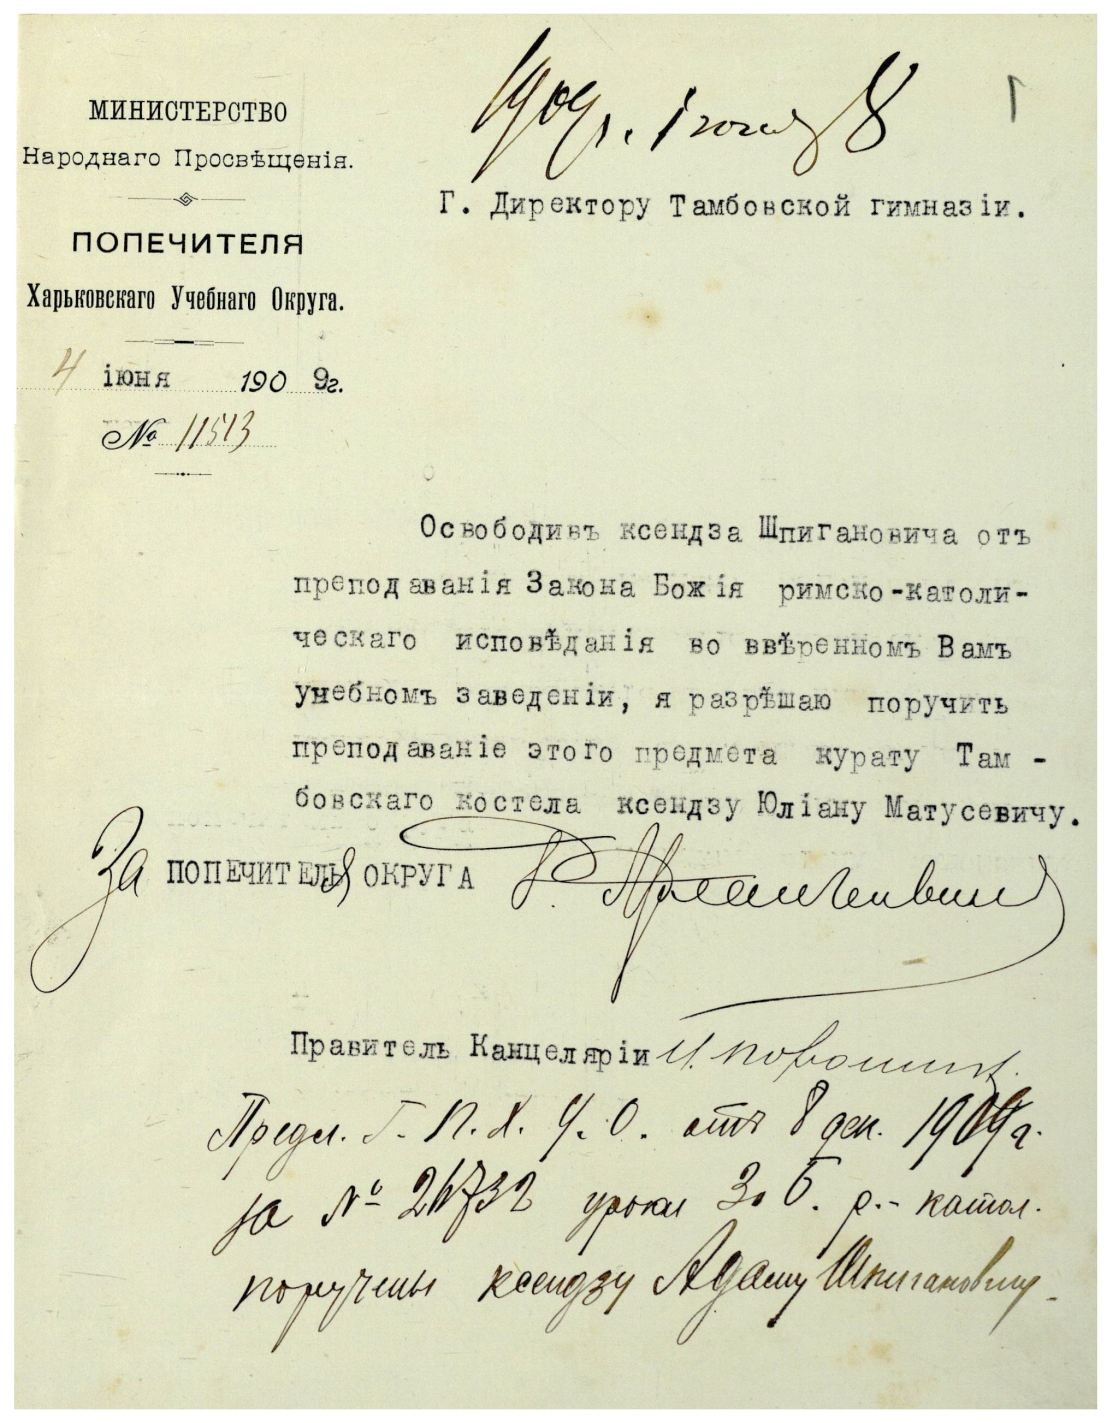 1909 г. Іюня 8
1
МИНИСТЕРСТВО
Народнаго Просвѣщенія.
ПОПЕЧИТЕЛЯ
Харьковскаго Учебнаго Округа.
4 іюня 1909г.
№ 11513
Г. Директору Тамбовской гимназіи.
Освободивъ ксендза Шпигановича отъ
преподаванія Закона Божія римско-католи-
ческаго исповѣданія во ввѣренномъ Вамъ
учебномъ заведеніи, я разрѣшаю поручить
преподаваніе этого предмета курату Там-
бовскаго костела ксендзу Юліану Матусевичу.
За ПОПЕЧИТЕЛЯ ОКРУГА
Правитель Канцеляріи
Предл. Г. П. Х. У. О. отъ 8 дек. 1909 г.
за № 26732 уроки З. Б. р.-катол.
поручены ксендзу Адаму Шпигановичу.